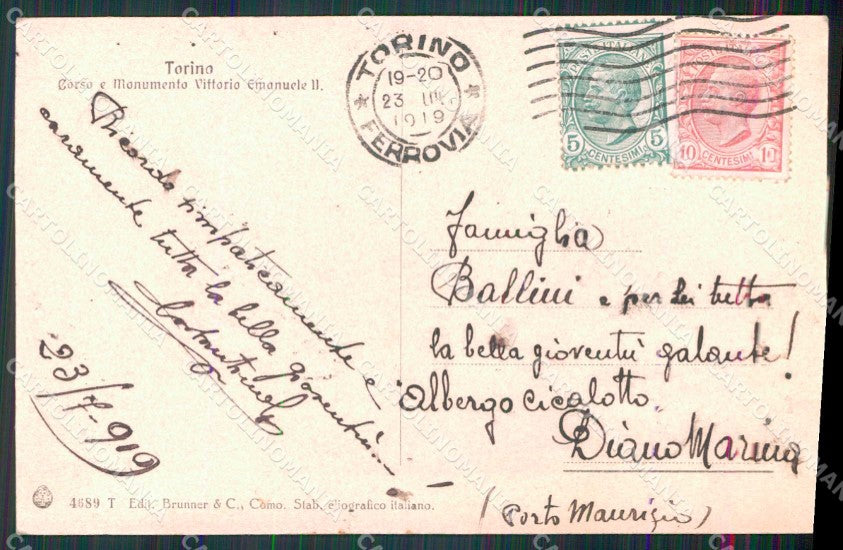 Torino
Corso e Monumento Vittorio Emanuele II.
TORINO
19-20
23 III
1919
FERROVIA
POSTE ITALIANE
5 CENTESIMI 5
10 CENTESIMI 10
Ricordo simpaticamente e
caramente tutta la bella gioventù...!
23/7-919
Famiglia
Ballini e per lei tutta
la bella gioventù galante!
"Albergo Cicalotto"
Diano Marina
(Porto Maurizio)
4689 T Edit. Brunner & C., Como. Stab. eliografico italiano.
CARTOLINOMANIA